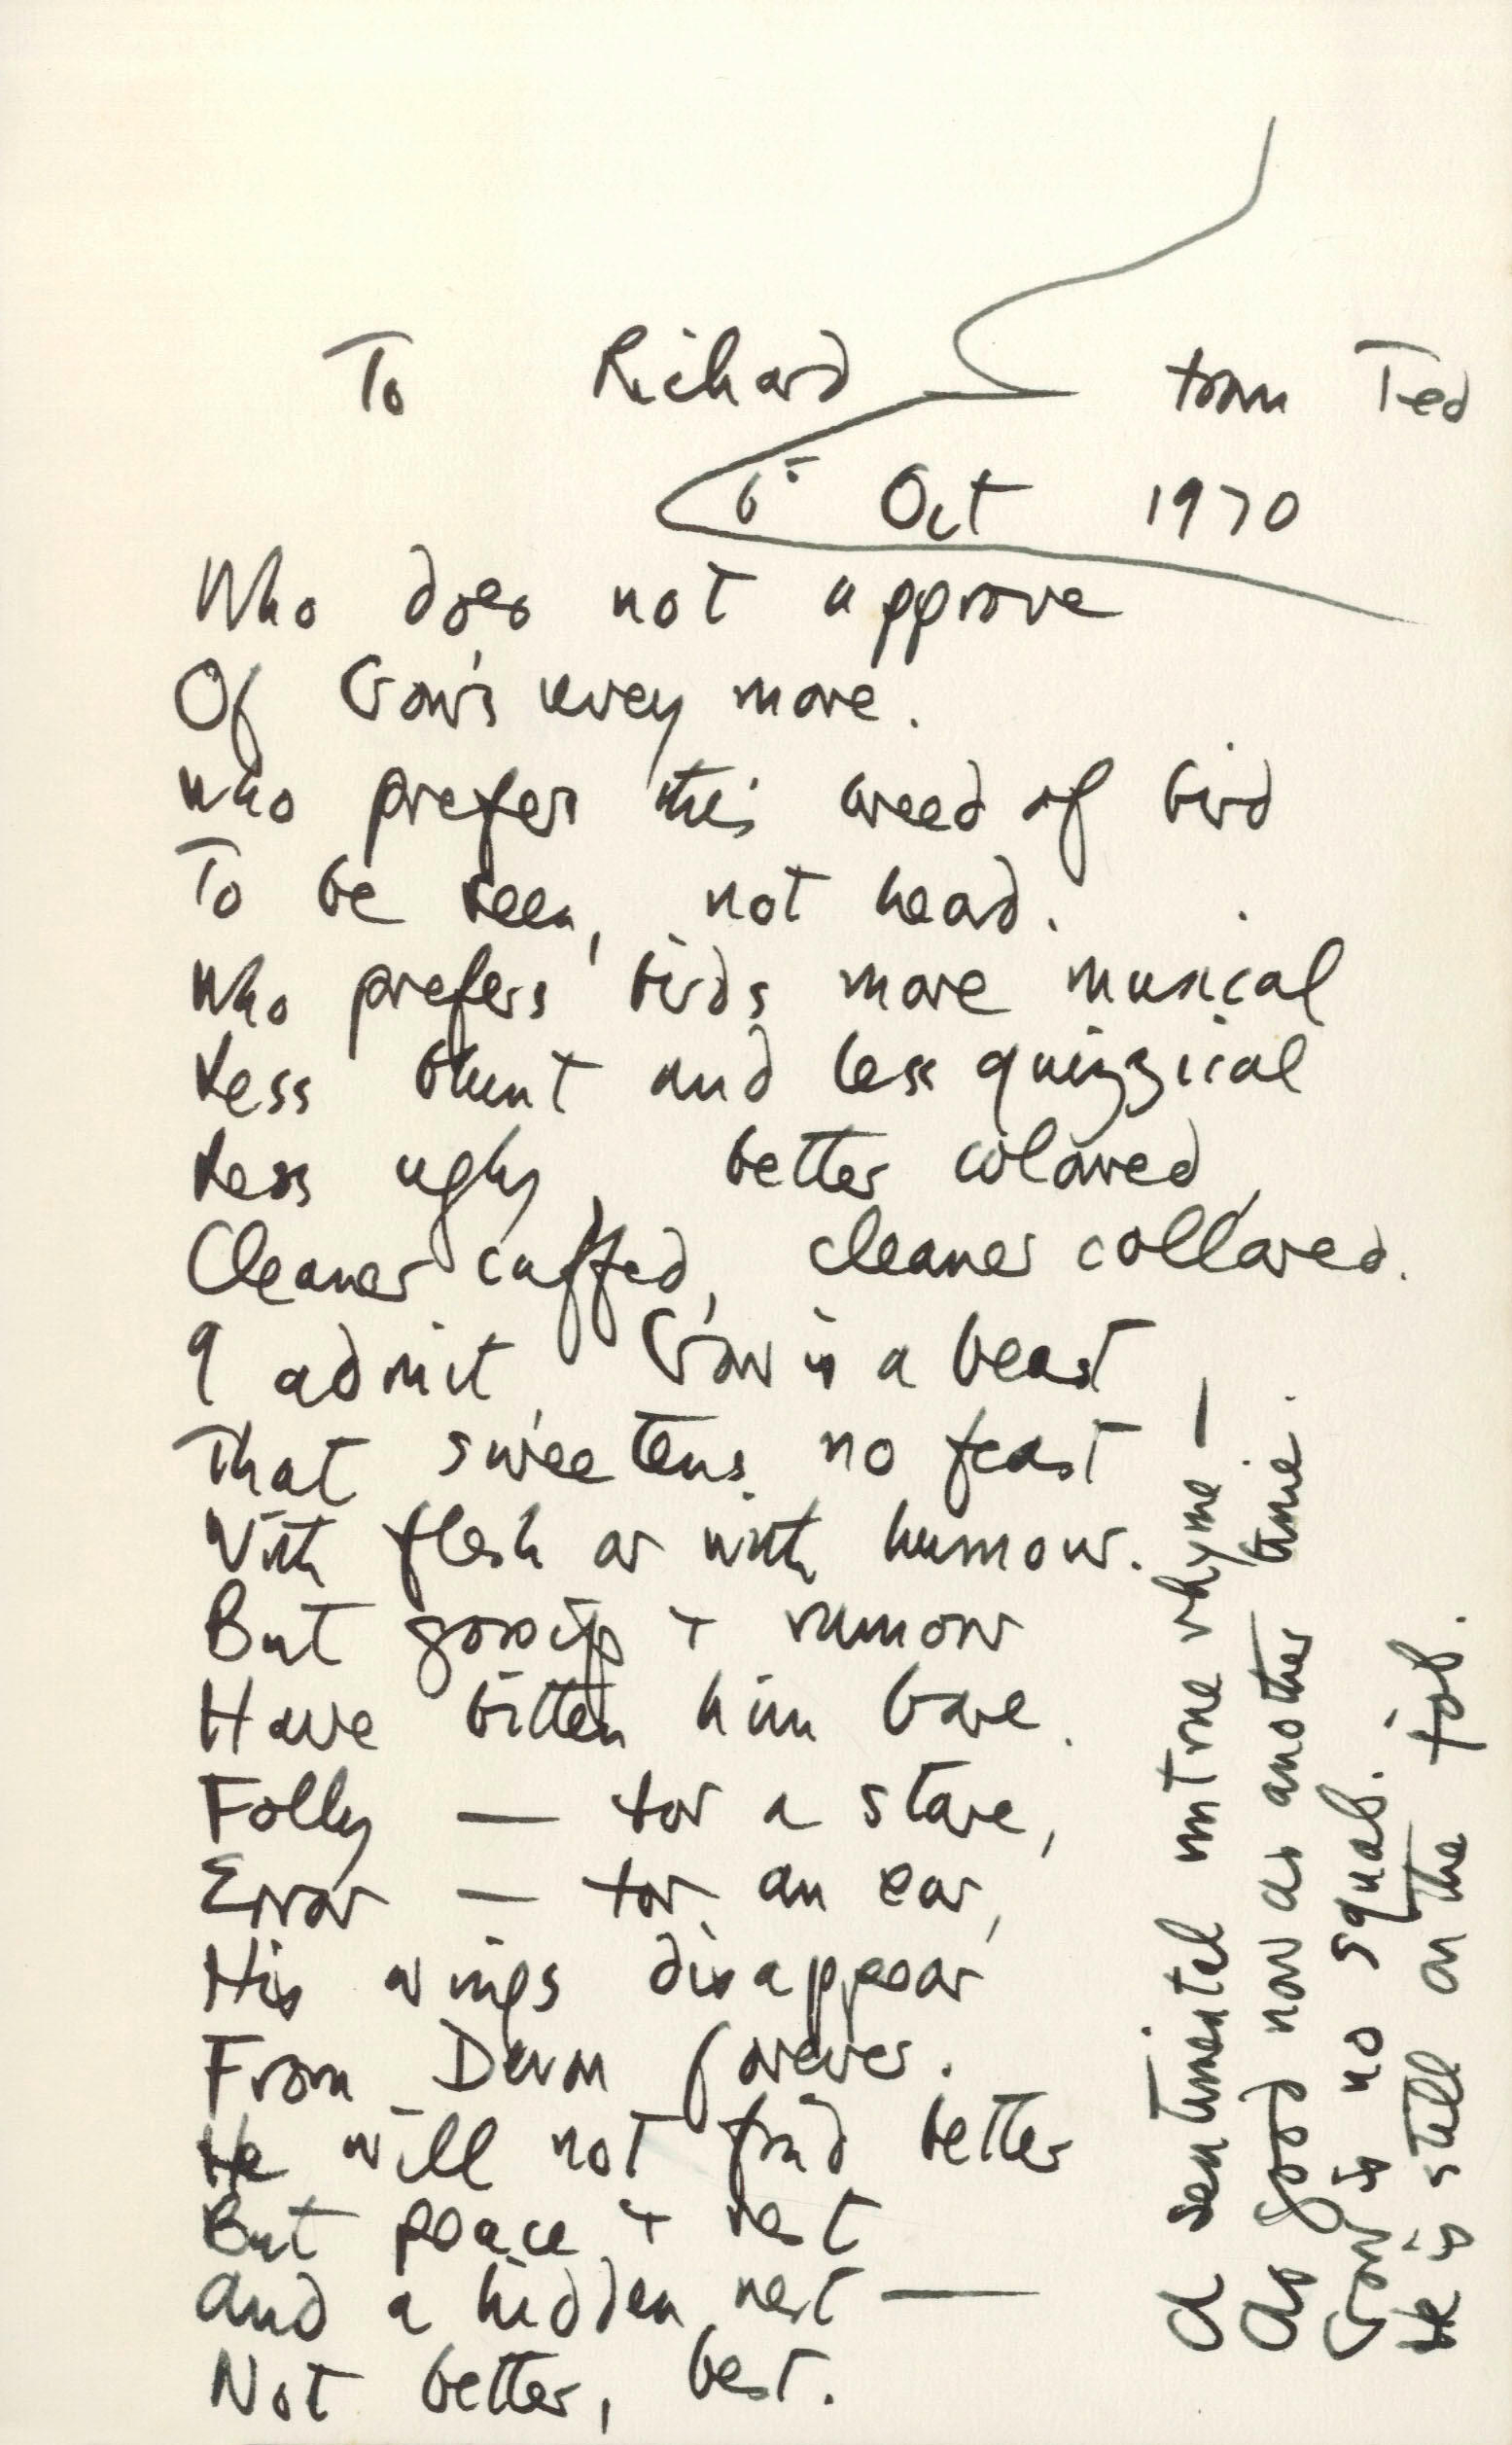 To Richard from Ted
6th Oct 1970
Who does not approve
Of Crow's every move.
Who prefers this weed of bird
To be seen, not heard.
Who prefers birds more musical
Less blunt and less quizzical
Less ugly, better coloured,
Cleaner cuffed, cleaner collared.
I admit, Crow is a beast
That sweetens no feast
With flesh or with humour.
But gossip + rumour
Have bitten him bare.
Folly — for a stare,
Error — for an ear,
His wings disappear
From Devon forever.
He will not find better
But peace + rest
And a hidden nest —
Not better, best.
A sentimental untrue rhyme —
As good now as another time.
Crow is no squab.
He is still on the job.